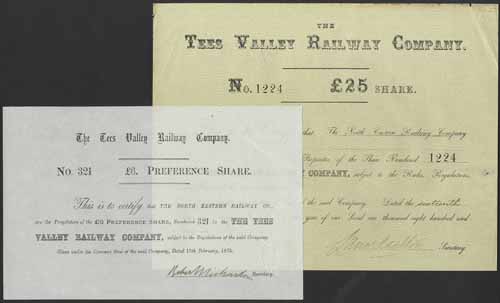 THE
TEES VALLEY RAILWAY COMPANY.
No. 1224 £25 SHARE.
that The North Eastern Railway Company
Proprietor of the Share Numbered 1224
COMPANY, subject to the Rules, Regulations,
the said Company. Dated the
year of our Lord one thousand eight hundred and
Secretary.
The Tees Valley Railway Company.
No. 321 £6. PREFERENCE SHARE.
This is to certify that THE NORTH EASTERN RAILWAY CO.,
are the Proprietors of the £6 PREFERENCE SHARE, Numbered 321 in THE TEES
VALLEY RAILWAY COMPANY, subject to the Regulations of the said Company.
Given under the Common Seal of the said Company, Dated 17th February,
Secretary.